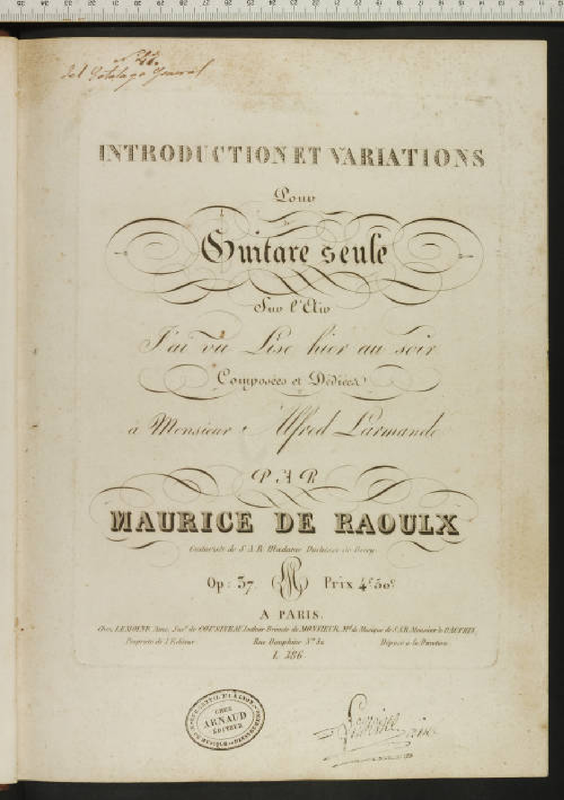 del Catalogo General
INTRODUCTION ET VARIATIONS
Pour
Guitare seule
Sur l'Air
J'ai vu Lise hier au soir
Composées et Dédiées
a Monsieur Alfred Larmande
PAR
MAURICE DE RAOULX
Guitariste de S.A.R. Madame Duchesse de Berry.
Op: 37. Prix 4f 50c
A PARIS.
Chez LEMOINE Ainé, Succr de COUSINEAU Luthier Breveté de MONSIEUR, Md de Musique de S.A.R. Monseur le DAUPHIN,
Propriété de l'Editeur Rue Dauphine No 32 Déposé à la Direction.
L 386
CHEZ
ARNAUD
ÉDITEUR
Lemoine aîné